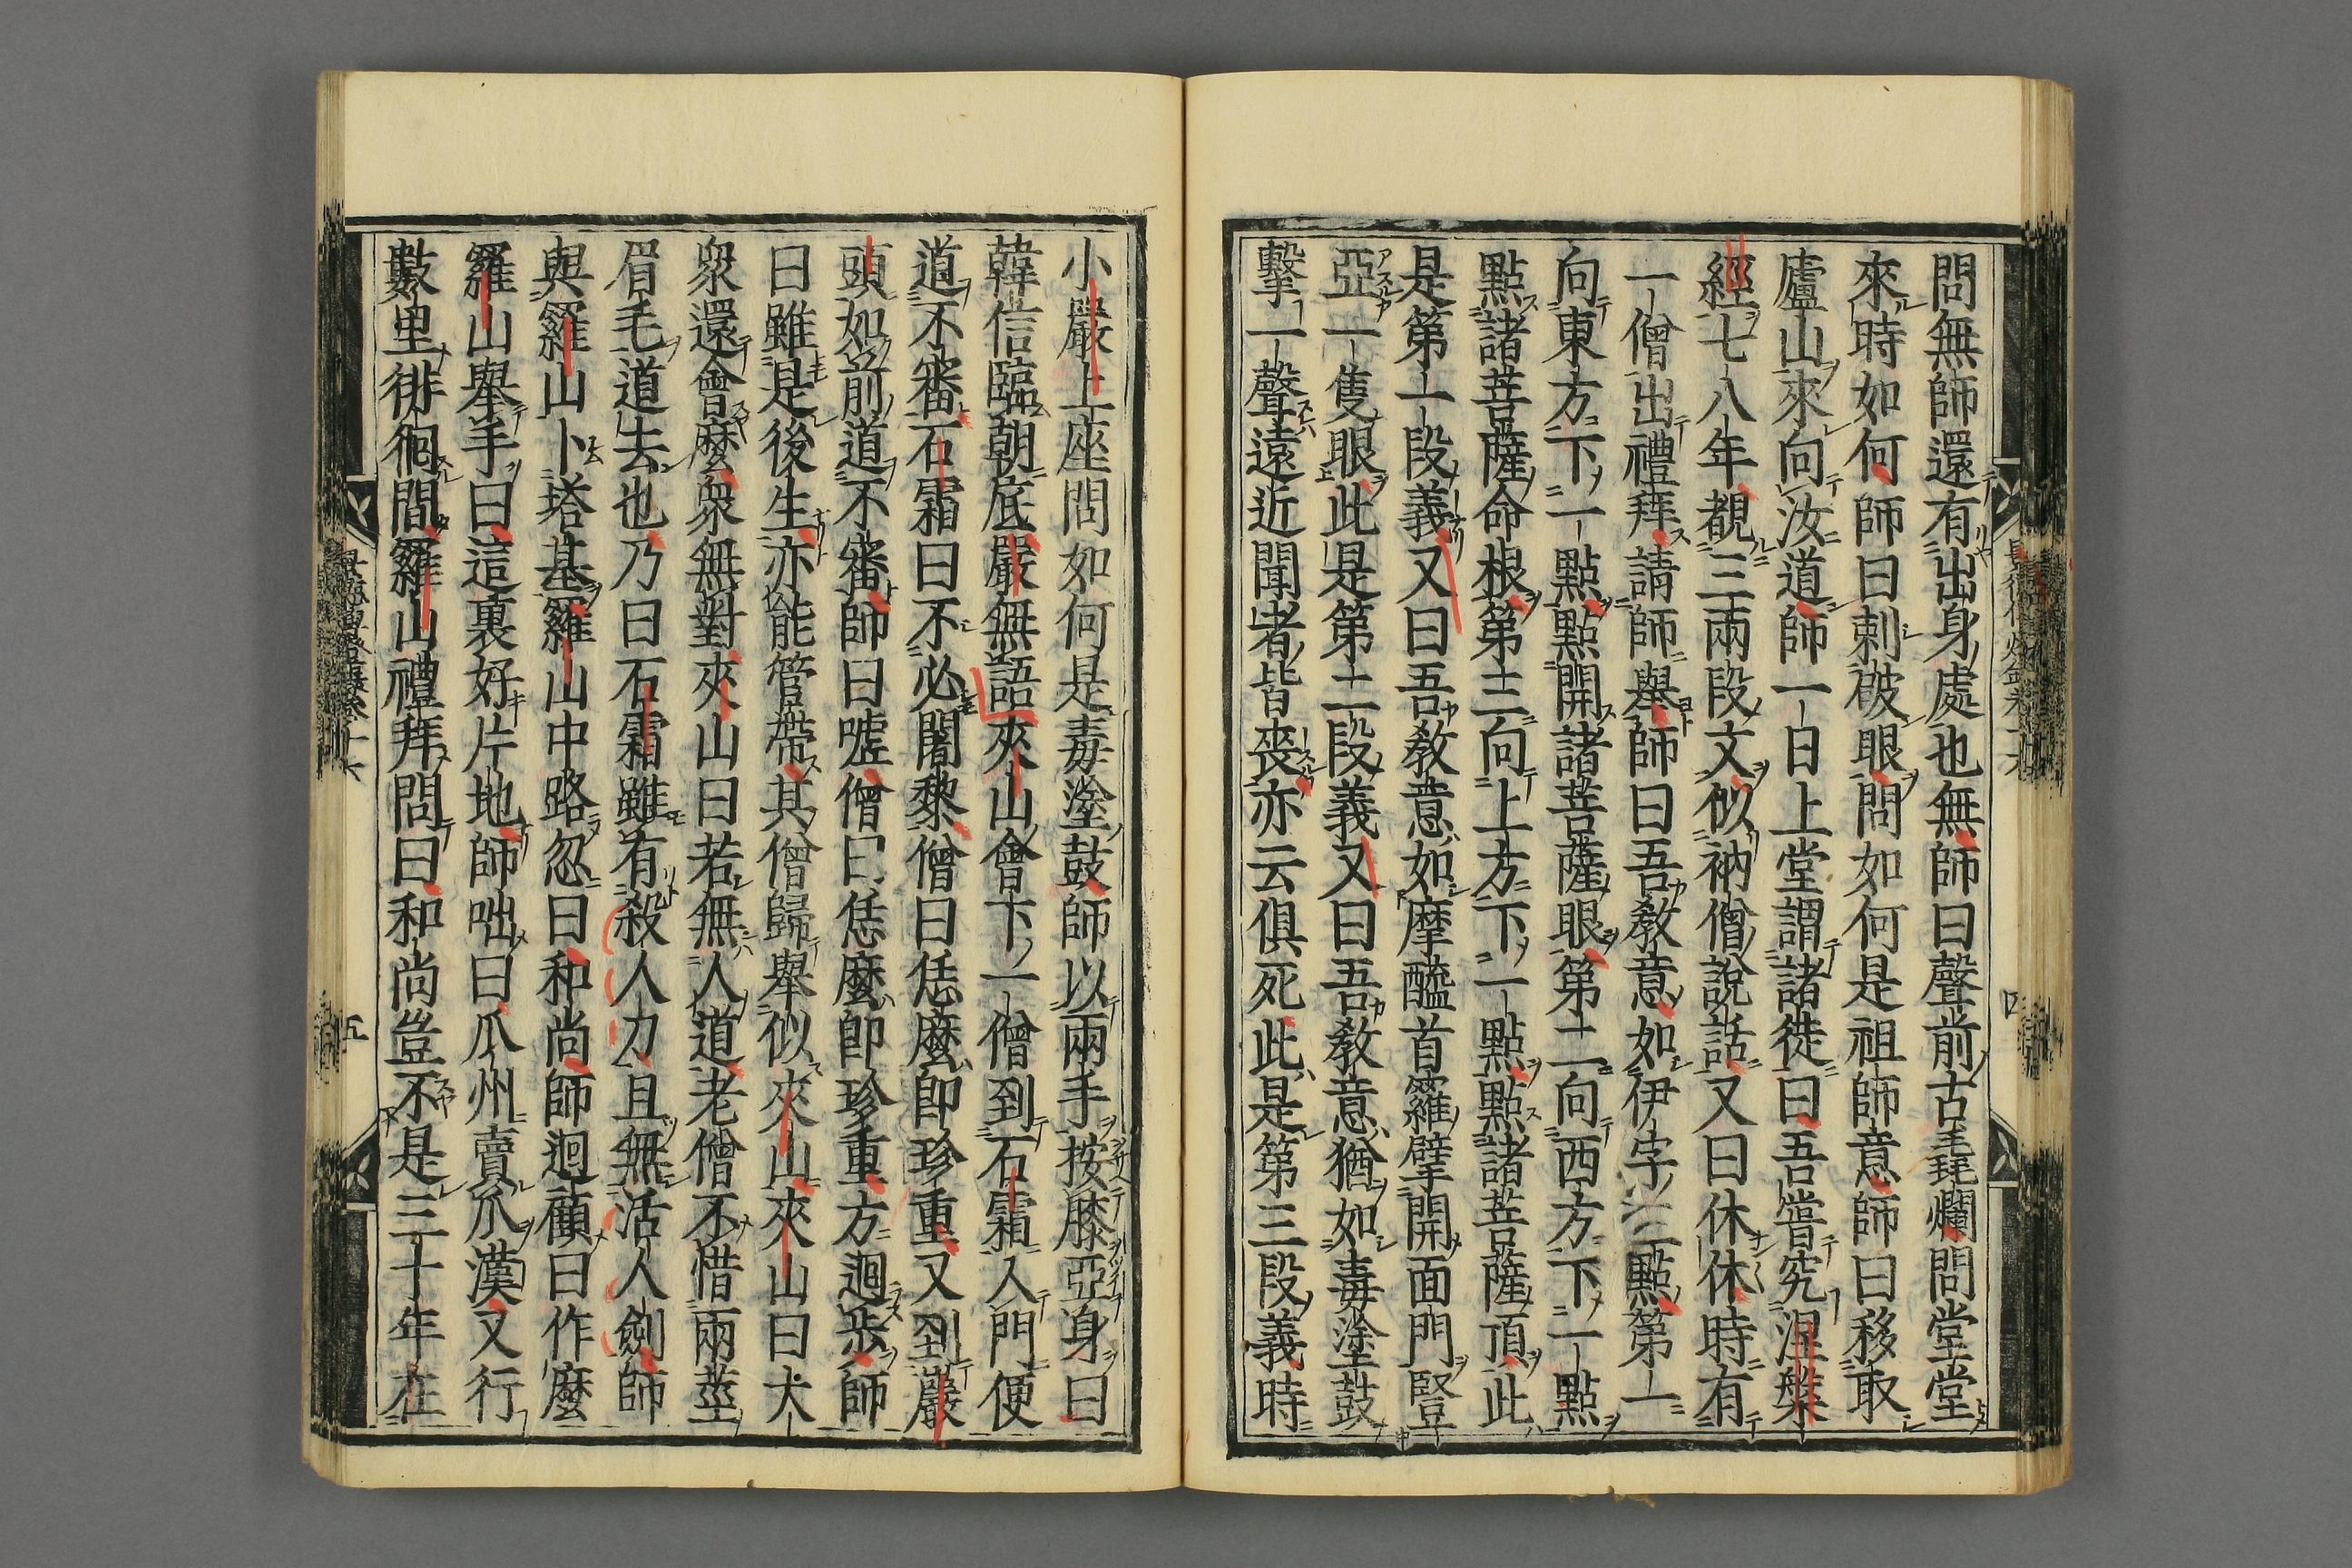 問無師還有出身處也無師曰聲前古毳爛問堂堂
來時如何師曰刺破眼問如何是祖師意師曰移取
廬山來向汝道師一日上堂謂諸徒曰吾嘗究涅槃
經七八年覩三兩段文似衲僧說話又曰休休時有
一僧出禮拜請師舉師曰吾教意如伊字三點第一
向東方下一點點開諸菩薩眼第二向西方下一點
點諸菩薩命根第三向上方下一點點諸菩薩頂此
是第一段義又曰吾教意如摩醯首羅擘開面門豎
亞一隻眼此是第二段義又曰吾教意猶如毒塗鼓
擊一聲遠近聞者皆喪亦云俱死此是第三段義時
小嚴上座問如何是毒塗鼓師以兩手按膝亞身曰
韓信臨朝底嚴無語夾山會下一僧到石霜入門便
道不審石霜曰不必闍黎僧曰恁麼即珍重又到巖
頭如前道不審師曰噓僧曰恁麼即珍重方迴步師
曰雖是後生亦能管帶其僧歸舉似夾山夾山曰大
眾還會麼眾無對夾山曰若無人道老僧不惜兩莖
眉毛道去也乃曰石霜雖有殺人力且無活人劍師
與羅山卜塔基羅山中路忽曰和尚師迴顧曰作麼
羅山舉手曰這裏好片地師咄曰瓜州賣瓜漢又行
數里徘徊間羅山禮拜問曰和尚豈不是三十年在
四
五